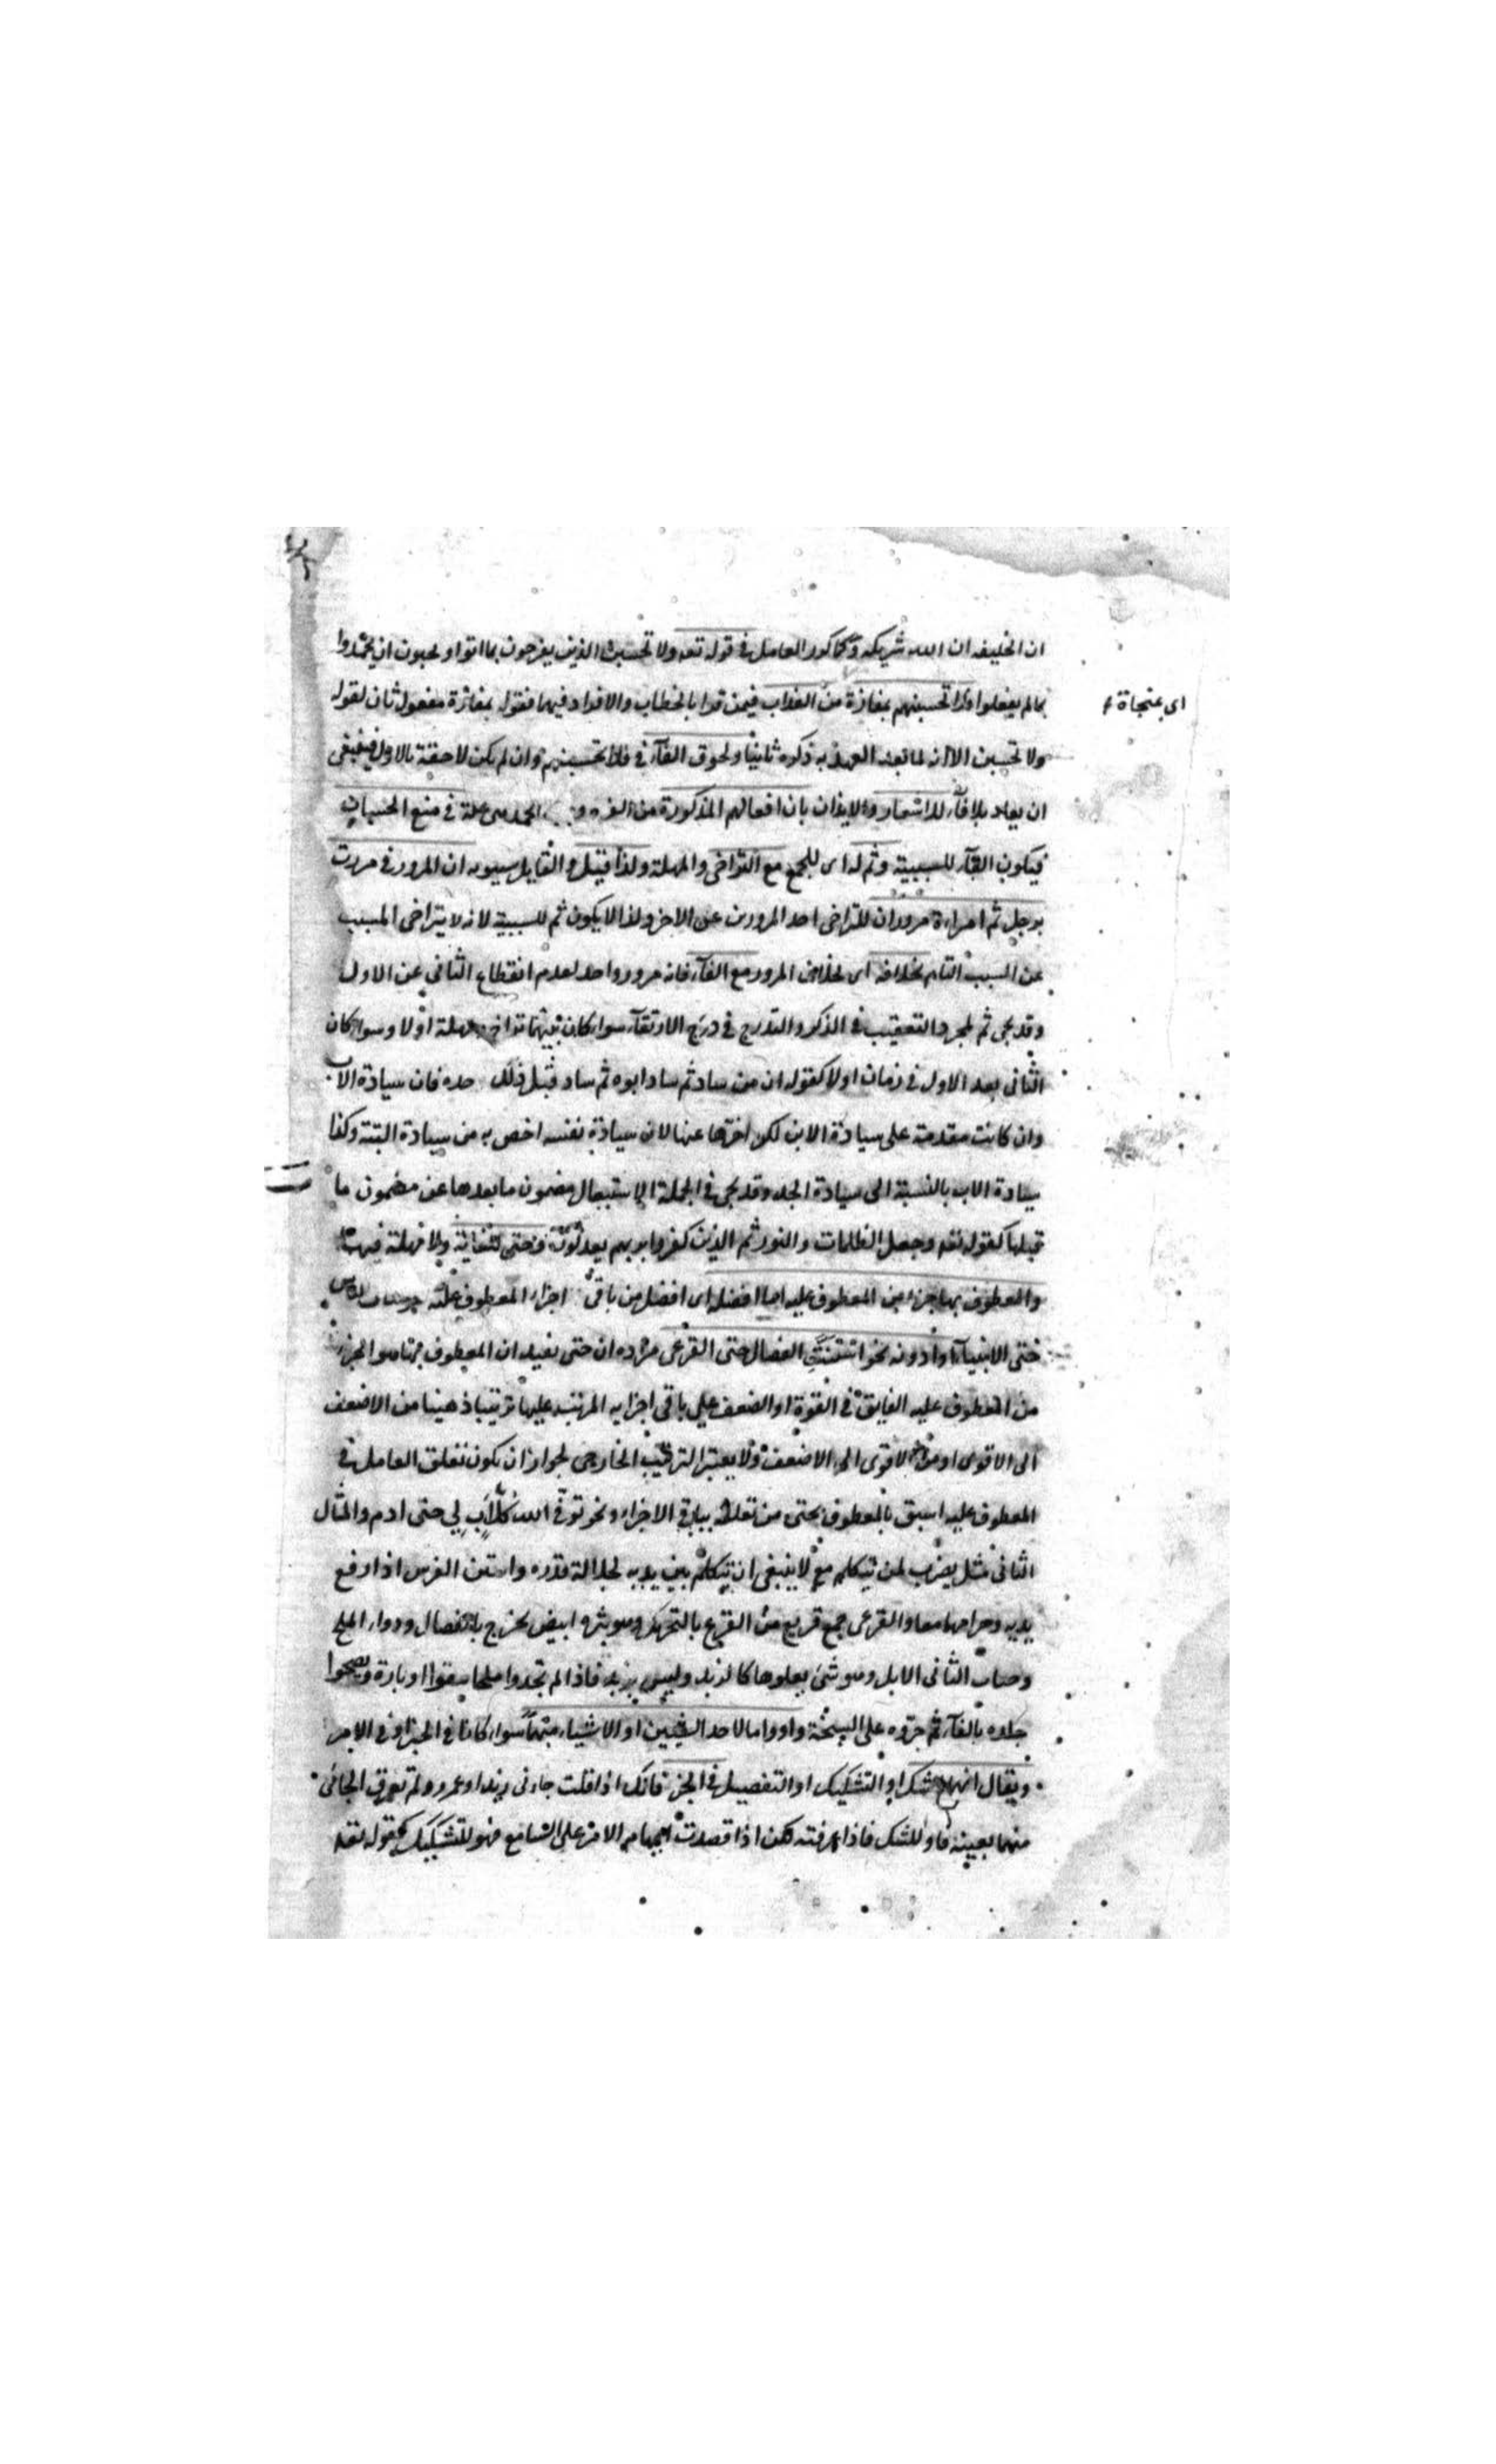 ان الخليفه ان الله شريكه وكما كرر العامل فى قوله تعه ولا تحسبن الذين يفرحون بما اتوا ويحبون ان يحمدوا
بما لم يفعلوا فلا تحسبنهم بمفازة من العذاب فيمن قرا بالخطاب والافراد فيهما فقوله بمفازة مفعول ثان لقوله
اى بمنجاة
ولا تحسبن الا انه لما بعد العهد به ذكره ثانيا ولحوق الفآء فى فلا تحسبنهم وان لم يكن لاحقة بالاول فينبغى
ان يعاد بلا فآء للاشعار والايذان بان افعالهم المذكورة من الفرح و الحمد هى علة فى منع الحسبان
فيكون الفآء للسببية وثم له اى للجمع مع التراخى والمهلة ولذا قيل والقايل سيبويه ان المرور فى مررت
برجل ثم امراءة مروران للتراخى احد المرورين عن الاخر ولذا لا يكون ثم للسببية لانه لا يتراخى المسبب
عن السبب التام بخلافه اى بخلاف المرور مع الفآء فانه مرور واحد لعدم انقطاع الثانى عن الاول
وقد يجئ ثم لمجرد التعقيب فى الذكر والتدرج فى درج الارتقآء سواء كان بينهما تراخ ومهلة اولا وسواء كان
الثانى بعد الاول فى زمان اولا كقوله ان من ساد ثم ساد ابوه ثم ساد قبل ذلك جده فان سيادة الاب
وان كانت مقدمة على سيادة الابن لكن اخرها عنها لان سيادة نفسه اخص به من سيادة ابيه وكذا
سيادة الاب بالنسبة الى سيادة الجد وقد يجئ فى الجملة لاستبعاد مضمون ما بعدها عن مضمون ما
قبلها كقوله تعه وجعل الظلمات والنور ثم الذين كفروا بربهم يعدلون وحتى للغاية ولا مهلة فيها
والمعطوف بها جزء من المعطوف عليه اما افضله اى افضل من باقى اجزاء المعطوف عليه نحو مات الناس
حتى الانبيآء او ادونه نحو استنت الفصال حتى القرعى مراده ان حتى يفيد ان المعطوف بها هو الجزء
من المعطوف عليه الفايق فى القوة او الضعف على باقى اجزايه المرتبة عليها ترتيبا ذهنيا من الاضعف
الى الاقوى او من الاقوى الى الاضعف ولا يعتبر الترتيب الخارجى لجواز ان يكون تعلق العامل فى
المعطوف عليه اسبق بالمعطوف بحتى من تعلقه بباقى الاجزاء نحو توفى الله كل اب لى حتى ادم والمثال
الثانى مثل يضرب لمن يتكلم مع لا ينبغى ان يتكلم بين يديه لجلالة قدره واستن الفرس اذا رفع
يديه وطرحهما معا والقرعى جمع قريع من القرع بالتحريك وهو بثر ابيض يخرج بالفصال ودواء الملح
وحباب الثانى الابل وهو شئ يعلوها كالزبد وليس بزبد فاذا لم تجدوا ملحا نتفوا اوباره ونضحوا
جلده بالمآء ثم جروه على السبخة واو واما لاحد الشيئين او الاشياء مبهما سواء كانا فى الخبر او فى الامر
ويقال انهما للشك او التشكيك او التفصيل فى الخبر فانك اذا قلت جاءنى زيد او عمرو ولم تعرف الجائى
منهما بعينه فاو للشك فاذا عرفته لكن اذا قصدت ابهام الامر على السامع فهو للتشكيك كقوله تعه